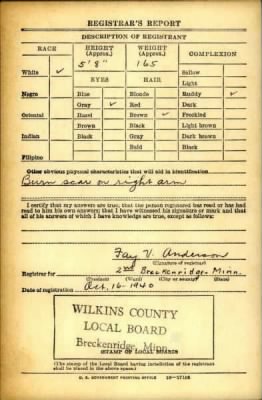 REGISTRAR'S REPORT
DESCRIPTION OF REGISTRANT
RACE
HEIGHT (Approx.)
WEIGHT (Approx.)
COMPLEXION
5' 8" 165
Sallow
White ✓
EYES HAIR
Light
Negro
Blue
Blonde
Ruddy ✓
Gray ✓
Red
Dark
Oriental
Hazel
Brown ✓
Freckled
Brown
Black
Light brown
Indian
Black
Gray
Dark brown
Bald
Black
Filipino
Other obvious physical characteristics that will aid in identification
Burn scar on right arm
I certify that my answers are true; that the person registered has read or has had
read to him his own answers; that I have witnessed his signature or mark and that
all of his answers of which I have knowledge are true, except as follows:
Fay V. Anderson
(Signature of registrar)
Registrar for 2nd Breckenridge, Minn.
(Precinct) (Ward) (City or county) (State)
Date of registration Oct. 16 - 1940
WILKINS COUNTY
LOCAL BOARD
Breckenridge, Minn.
(STAMP OF LOCAL BOARD)
(The stamp of the Local Board having jurisdiction of the registrant
shall be placed in the above space.)
U. S. GOVERNMENT PRINTING OFFICE